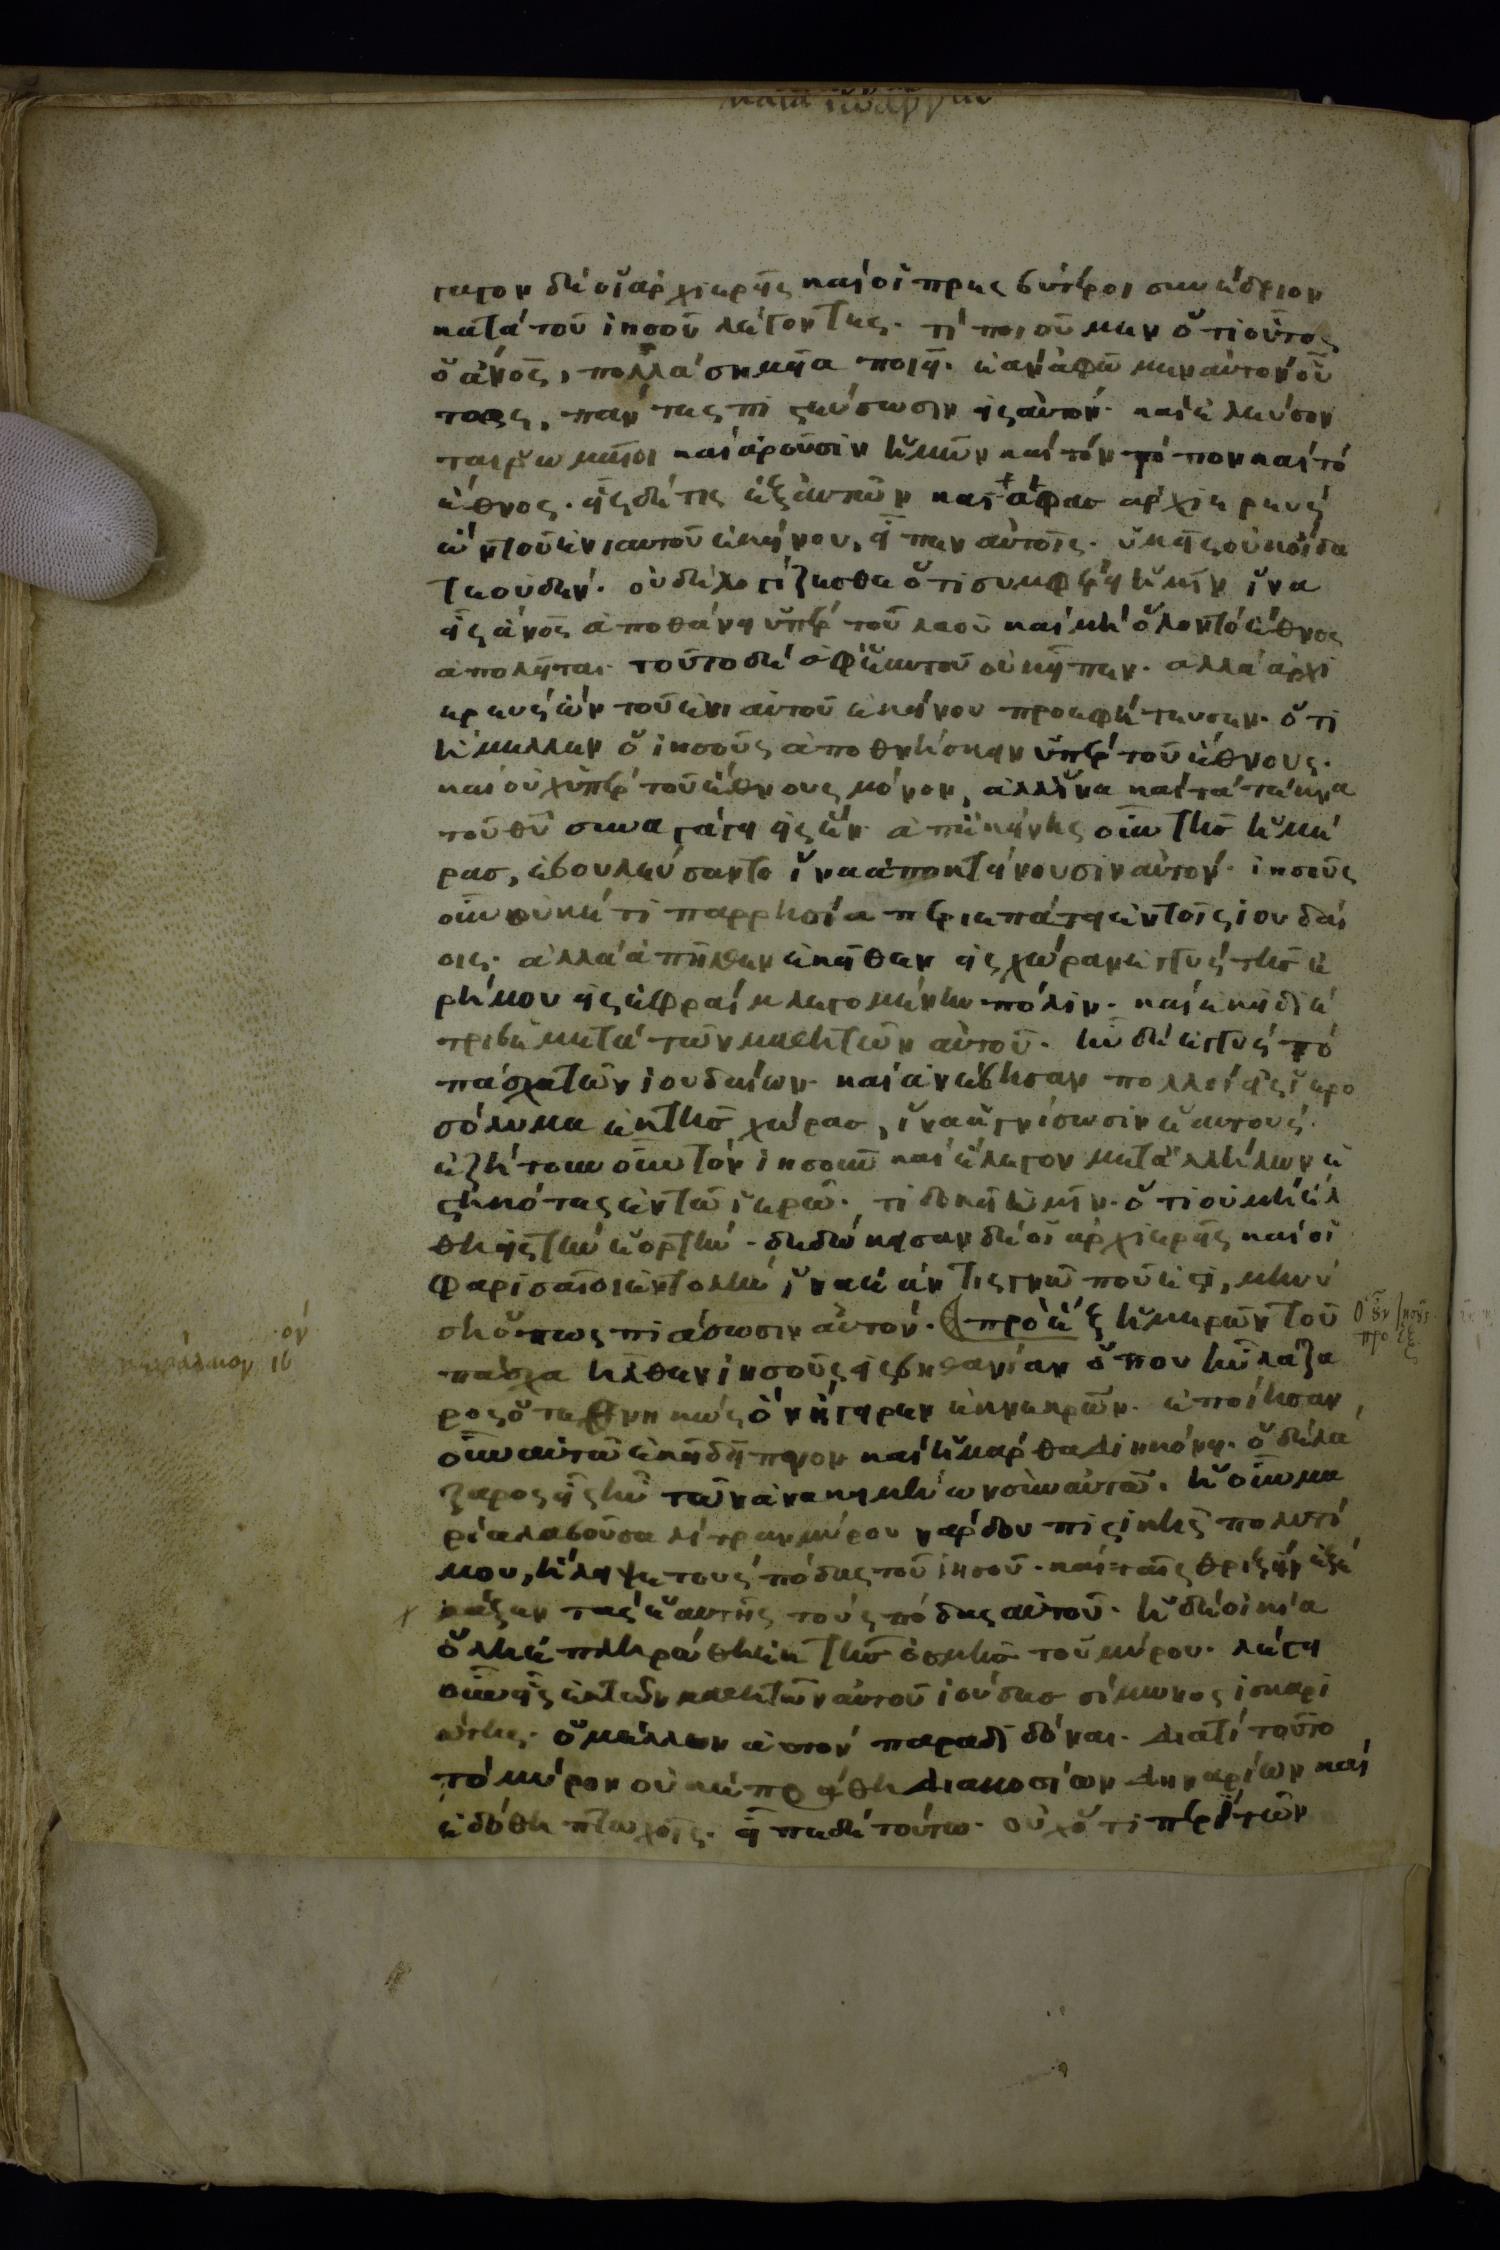 κατὰ ἰωάννην
γαγον δὲ οἱ ἀρχιερεῖς καὶ οἱ πρεσβύτεροι συνέδριον
κατὰ τοῦ ἰησοῦ λέγοντες· τί ποιοῦμεν ὅτι οὗτος
ὁ ἄνος, πολλὰ σημεῖα ποιεῖ· ἐὰν ἀφῶμεν αὐτὸν οὕ
τως, πάντες πιστεύσωσιν εἰς αὐτόν· καὶ ἐλεύσον
ται ῥωμαῖοι καὶ ἀροῦσιν ἡμῶν καὶ τὸν τόπον καὶ τὸ
ἔθνος· εἷς δέ τις ἐξ αὐτῶν καϊάφας ἀρχιερεὺς
ὢν τοῦ ἐνιαυτοῦ ἐκείνου, εἶπεν αὐτοῖς· ὑμεῖς οὐκ οἴδα
τε οὐδέν· οὐδὲ λογίζεσθε ὅτι συμφέρει ἡμῖν ἵνα
εἷς ἄνος ἀποθάνη ὑπὲρ τοῦ λαοῦ καὶ μὴ ὅλον τὸ ἔθνος
ἀπόληται· τοῦτο δὲ ἀφ ἑαυτοῦ οὐκ εἶπεν· ἀλλὰ ἀρχι
ερεὺς ὢν τοῦ ἐνιαυτοῦ ἐκείνου προεφήτευσεν· ὅτι
ἤμελλεν ὁ ἰησοῦς ἀποθνήσκειν ὑπὲρ τοῦ ἔθνους·
καὶ οὐχ ὑπὲρ τοῦ ἔθνους μόνον, ἀλλ ἵνα καὶ τὰ τέκνα
τοῦ θῦ συναγάγη εἰς ἕν· ἀπ ἐκείνης οὖν τῆς ἡμέ
ρας, ἐβουλεύσαντο ἵνα ἀποκτείνουσιν αὐτόν· ἰησοῦς
οὖν οὐκέτι παρρησία περιεπάτει ἐν τοῖς ἰουδαί
οις· ἀλλὰ ἀπῆλθεν ἐκεῖθεν εἰς χώραν ἐγγὺς τῆς ἐ
ρήμου εἰς ἐφραὶμ λεγομένην πόλιν· καὶ ἐκεῖ διέ
τριβε μετὰ τῶν μαθητῶν αὐτοῦ· ἦν δὲ ἐγγὺς τὸ
πάσχα τῶν ἰουδαίων· καὶ ἀνέβησαν πολλοὶ εἰς ἱερο
σόλυμα ἐκ τῆς χώρας, ἵνα ἁγνίσωσιν ἑαυτούς·
ἐζήτουν οὖν τὸν ἰησοῦν καὶ ἔλεγον μετ ἀλλήλων ἑ
στηκότες ἐν τῶ ἱερῶ· τί δοκεῖ ὑμῖν· ὅτι οὐ μὴ ἔλ
θη εἰς τὴν ἑορτήν· δεδώκεισαν δὲ οἱ ἀρχιερεῖς καὶ οἱ
φαρισαῖοι ἐντολὴν, ἵνα ἐάν τις γνῶ ποῦ ἐστι, μηνύ
ση ὅπως πιάσωσιν αὐτόν· πρὸ ἓξ ἡμερῶν τοῦ
ὁ οὖν ἰησοῦς
προ ἓξ
κεφάλαιον ιβ
ον
πάσχα ἦλθεν ἰησοῦς εἰς βηθανίαν ὅπου ἦν λάζα
ρος ὁ τεθνηκὼς ὃν ἤγειρεν ἐκ νεκρῶν· ἐποίησαν
οὖν αὐτῶ ἐκεῖ δεῖπνον καὶ ἡ μάρθα διηκόνει· ὁ δὲ λά
ζαρος εἷς ἦν τῶν ἀνακειμένων σὺν αὐτῶ· ἡ οὖν μα
ρία λαβοῦσα λίτραν μύρου νάρδου πιστικῆς πολυτί
μου, ἤλειψε τοὺς πόδας τοῦ ἰησοῦ· καὶ ταῖς θριξὶν ἐξέ
μαξεν τὰς ἑαυτῆς τοὺς πόδας αὐτοῦ· ἡ δὲ οἰκία
ὅλη ἐπληρώθη ἐκ τῆς ὀσμῆς τοῦ μύρου· λέγει
οὖν εἷς ἐκ τῶν μαθητῶν αὐτοῦ ἰούδας σίμωνος ἰσκαρι
ώτης· ὁ μέλλων αὐτὸν παραδιδόναι· διατί τοῦτο
τὸ μύρον οὐκ ἐπράθη διακοσίων δηναρίων καὶ
ἐδόθη πτωχοῖς· εἶπε δὲ τοῦτο· οὐχ ὅτι περὶ τῶν